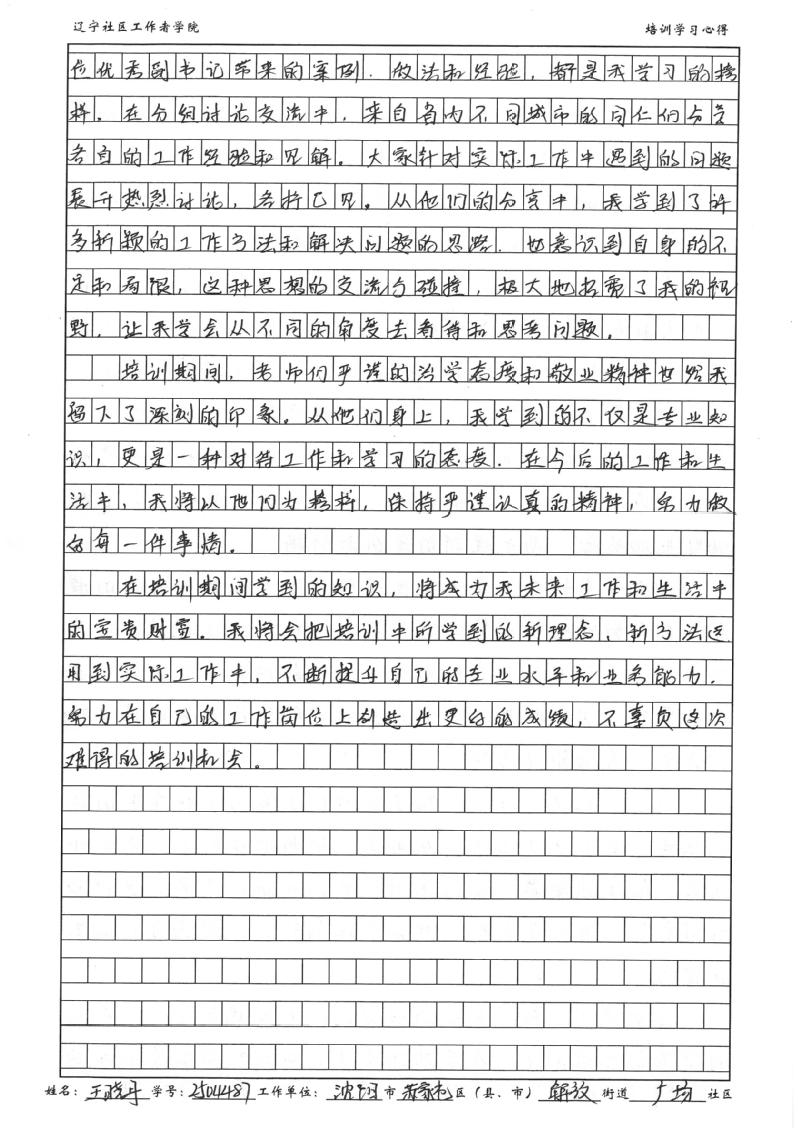 辽宁社区工作者学院 培训学习心得
位优秀副书记带来的案例、做法和经验，都是我学习的榜
样。在分组讨论交流中，来自省内不同城市的同仁们分享
各自的工作经验和见解。大家针对实际工作中遇到的问题
展开热烈讨论，各持己见。从他们的分享中，我学到了许
多新颖的工作方法和解决问题的思路，也意识到自身的不
足和局限，这种思想的交流与碰撞，极大地拓宽了我的视
野，让我学会从不同的角度去看待和思考问题。
培训期间，老师们严谨的治学态度和敬业精神也给我
留下了深刻的印象。从他们身上，我学到的不仅是专业知
识，更是一种对待工作和学习的态度。在今后的工作和生
活中，我将以他们为榜样，保持严谨认真的精神，努力做
好每一件事情。
在培训期间学到的知识，将成为我未来工作和生活中
的宝贵财富。我将会把培训中所学到的新理念、新方法运
用到实际工作中，不断提升自己的专业水平和业务能力，
努力在自己的工作岗位上创造出更好的成绩，不辜负这次
难得的培训机会。
姓名：王晓丹 学号：2504487 工作单位：沈阳市苏家屯区（县、市）解放街道广场社区